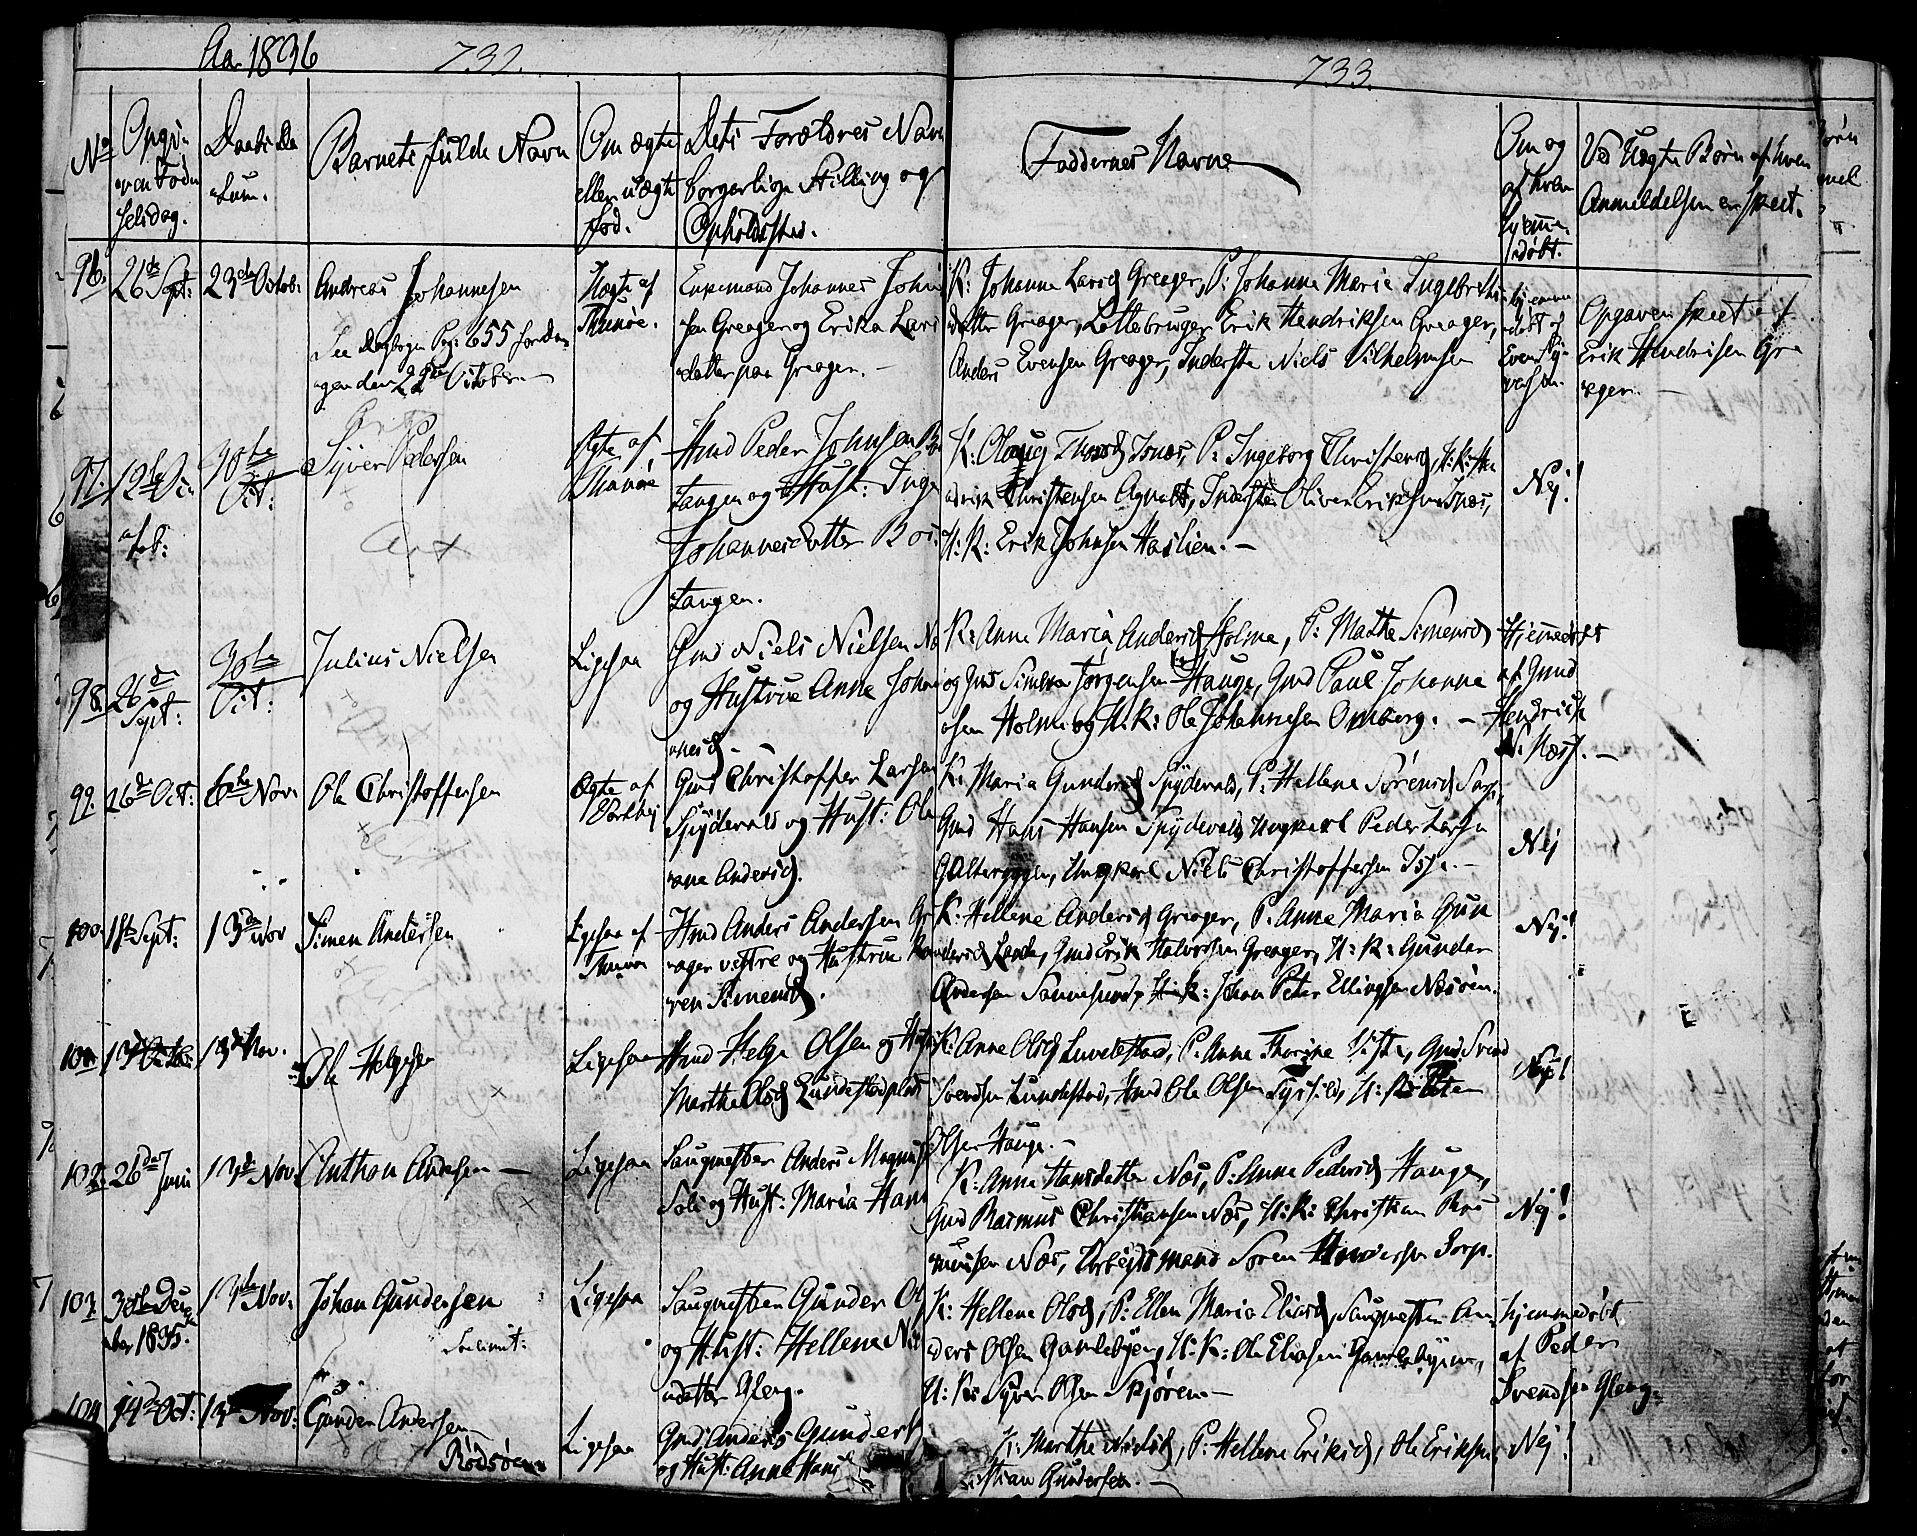 Aa 1836
732.
733.
No
Opgivven Fødselsdag.
Daabs Datum.
Barnets fulde Navn
Om ægte eller uægte fød.
Dets Forældres Navn borgerlige Stilling og Opholdssted.
Faddernes Navne
Om og af hvem hjemmedøbt.
Ved Uægte Børn af hvem Anmeldelsen er skeet.
96. 26de Sept: 23de Octob: Andreas Johannesen
See Dagbogen Pag: 655 for Dagen den 22de October
Uægte af Thunøe.
Enkemand Johannes Joh
sen Greager og Erika Lars
datter paa Greager. —
K: Johanne Larsd Greager, P: Johanne Marie Ingebreths
datter Greager, Lottebruger Erik Hendriksen Greager,
Anders Evensen Greager, Inderste Niels Vilhelmsen
hjemmedøbt af Even
Opgaven skeet af
Erik Hendrisen Gre
ager. —
97. 12te Octob: 30te Oct: Syver Pedersen
Ægte af Thunøe
Hmd Peder Johnsen B
tangen og Hust: Inge
Johannesdatter Bo
tangen.
K: Olaug Thorsd Isnæs, P: Ingeborg Christensd, U: K: He
ndrik Christensen Agnalt, Inderste Oliver Eriksen Isnæs,
U: K: Erik Johnsen Haslien. —
Nej!
98. 26de Sept: 30te Oct: Julius Nielsen
Ligesaa
Gmd Niels Nielsen N
og Hustrue Anne Johan
nesd —
K: Anne Maria Andersd Holme, P: Mathe Simensd
og Gmd Simen Jørgensen Hauge, Gmd Paul Johanne
sen Holme og U: K: Ole Johannesen Omberg. —
Hjemmedøbt
af Gmd
Hendrick
N: Næss. —
99. 26de Oct: 6te Nov: Ole Christoffersen
Ægte af Varteig
Gmd Christoffer Larsen
Spydevold og Hust: Ol
ane Andersd.
K: Maria Gundersd Spydevold, P: Hellene Sørensd Sorp,
Gmd Hans Hansen Spydevold, Ungkarl Peder Larsen
Galteryggen, Ungkarl Niels Christoffersen Isse. —
Nej
100. 18de Sept: 13de Nov Simen Andersen
Ligesaa af Thunøe
Hmd Anders Andersen Gr
eager vestre og Hustrue Ka
ren Simensd.
K: Hellene Andersd Greager, P: Anne Maria Gun
dersd Lande, Gmd Erik Halvorsen Greager, U: K: Gunder
Andersen Sannesund, U: K: Johan Peter Ellingsen Næsøen.
Nej!
101. 13de Octob: 13de Nov. Ole Helgesen
Ligesaa
Hmd Helge Olsen og Hust
Marthe Olsd Lundestadplads
K: Anne Olsd Lundestad, P: Anne Thorine Viste, Gmd Svend
Svendsen Lundestad, Hmd Ole Olsen, U: K: Peter
Olsen Hauge. —
Nej!
102. 26de Juni 13de Nov Anthon Andersen —
Ligesaa
Saugmester Anders Magnus
Soli og Hust: Maria Hans
K: Anne Hansdatter Næs, P: Anne Pedersd Hauge,
Gmd Rasmus Christiansen Næs, U: K: Christian Ras
musen Næs, Arbejdsmand Søren Andersen Sorp.
Nej!
103. 30te December 1835. 13de Nov: Johan Gundersen
Ligesaa
Saugmester Gunder Ol
og Hust: Hellene Ni
datter Gleng.
K: Hellene Olsd, P: Ellen Maria Eliasd, Saugmester An
ders Olsen Gamlebyen, U: K: Ole Eliasen Gamlebyen,
U: K: Syver Olsen Skjøren —
hjemmedøbt
af Peder
Svendsen Gleng.
104 14de Oct: 13de Nov: Gunder Andersen
Rødsøen
Ligesaa
Gmd: Anders Gunders
og Hust: Anne Hans
K: Marthe Nielsd, P: Hellene Eriksd, Ole Eriksen,
Christian Gundersen. —
Nej!